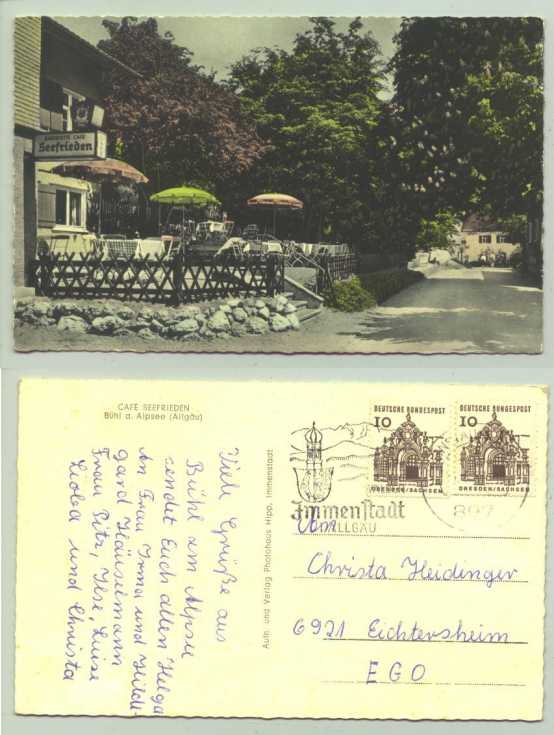 Seefrieden
CAFÉ SEEFRIEDEN
Bühl a. Alpsee (Allgäu)
Viele Grüße aus
Bühl am Alpsee
sendet Euch allen Helga
An Frau Irma und Hilde-
gard Häusermann
Frau Pitz, Ilse, Luise
Lioba und Christa
Aufn. und Verlag Photohaus Hipp, Immenstadt
Immenstadt
ALLGÄU
DEUTSCHE BUNDESPOST
10
DRESDEN/SACHSEN
DEUTSCHE BUNDESPOST
10
DRESDEN/SACHSEN
897
Christa Heidinger
6921 Eichtersheim
EGO